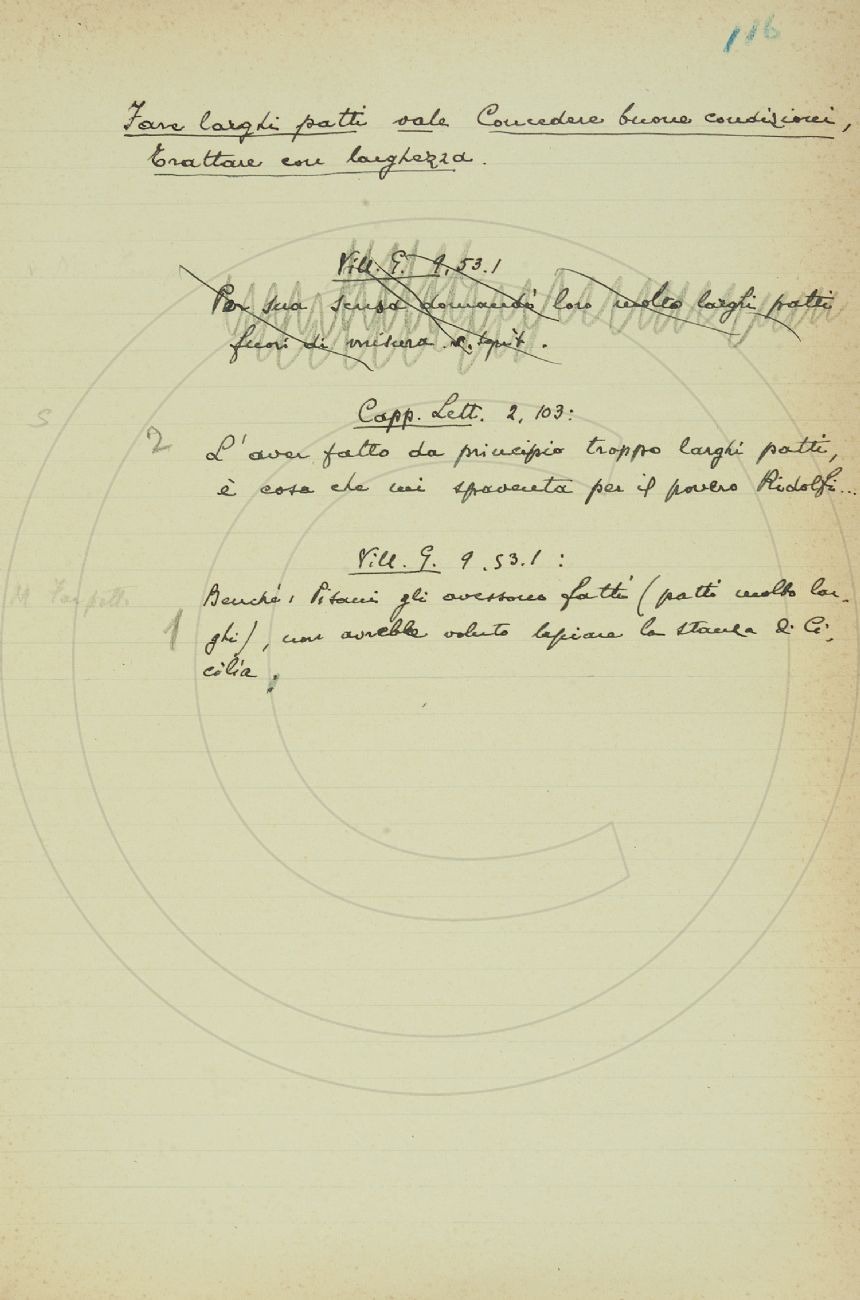 116
Fare larghi patti vale Concedere buone condizioni,
Trattare con larghezza.
Vill. G. 9,53.1
Per sua scusa domandò loro molto larghi patti
fuori di misura
Capp. Lett. 2, 103:
2 L'aver fatto da principio troppo larghi patti,
è cosa che mi spaventa per il povero Ridolfi...
S
Vill. G. 9.53.1:
Benché i Pisani gli avessono fatti (patti molto lar-
1 ghi), non avrebbe voluto lasciare la stanza di Ci-
cilia.